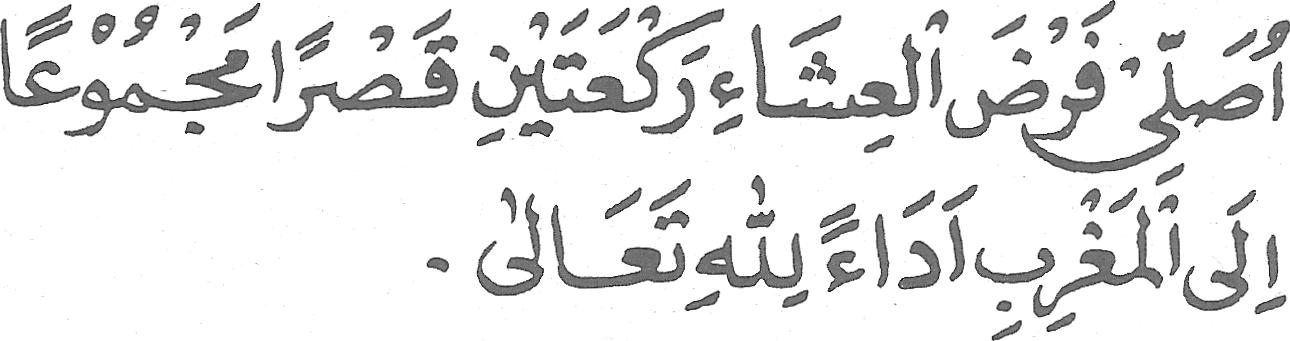 اُصَلِّىْ فَرْضَ الْعِشَاءِ رَكْعَتَيْنِ قَصْرًا مَجْمُوْعًا
اِلَى الْمَغْرِبِ اَدَاءً لِلّٰهِ تَعَالٰى .